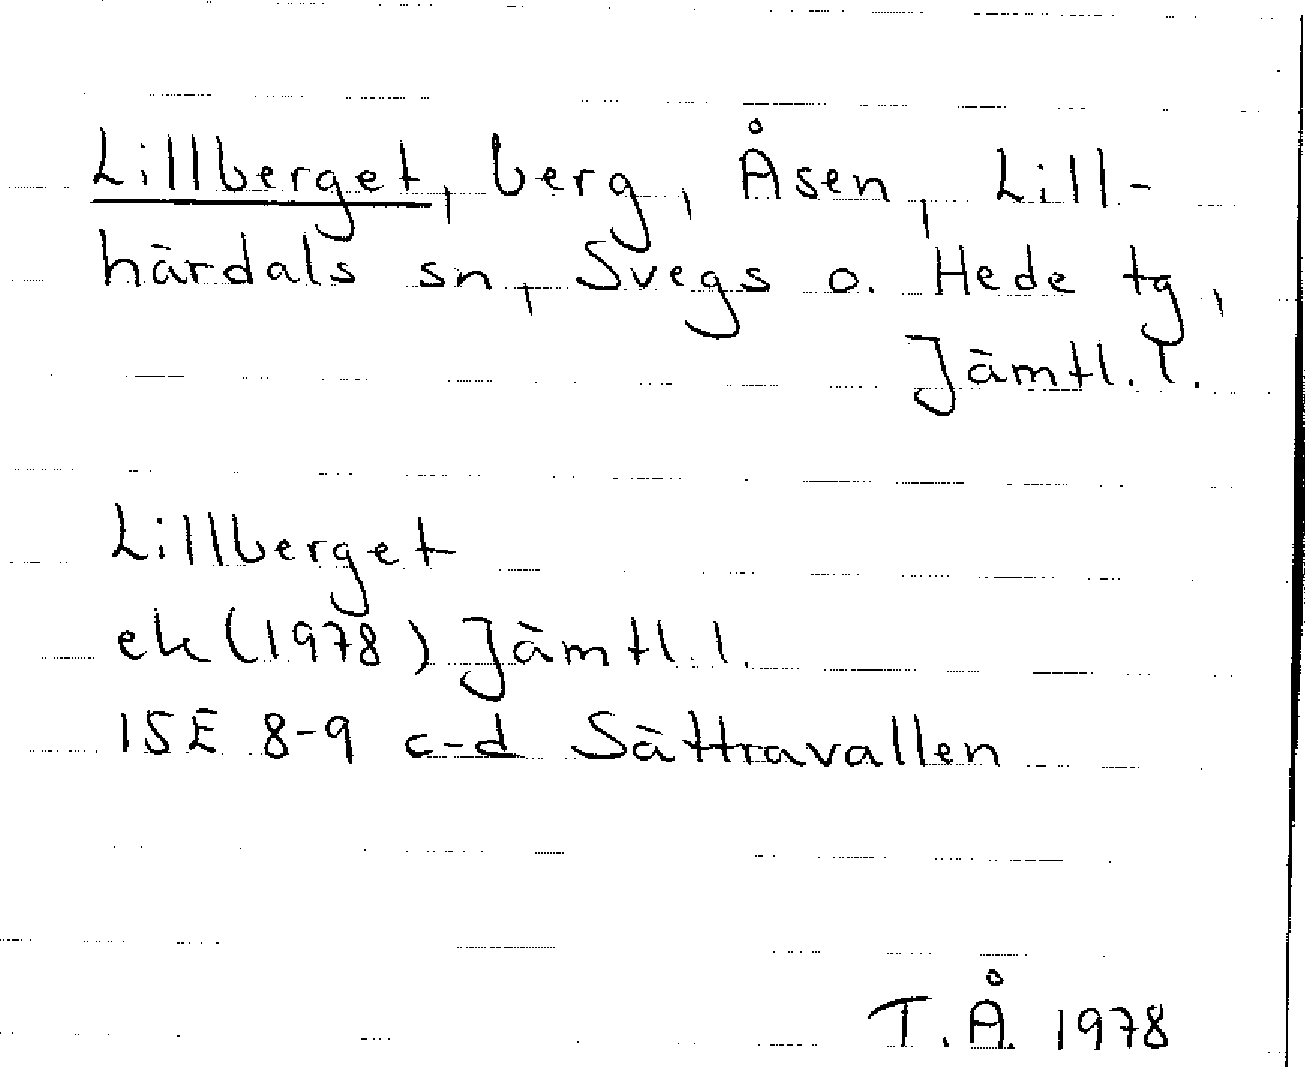 Lillberget, berg, Åsen, Lill-
härdals sn, Svegs o. Hede tg,
Jämtl. l.
Lillberget
ek (1978) Jämtl. l.
15E 8-9 c-d Sättravallen
T.Å. 1978